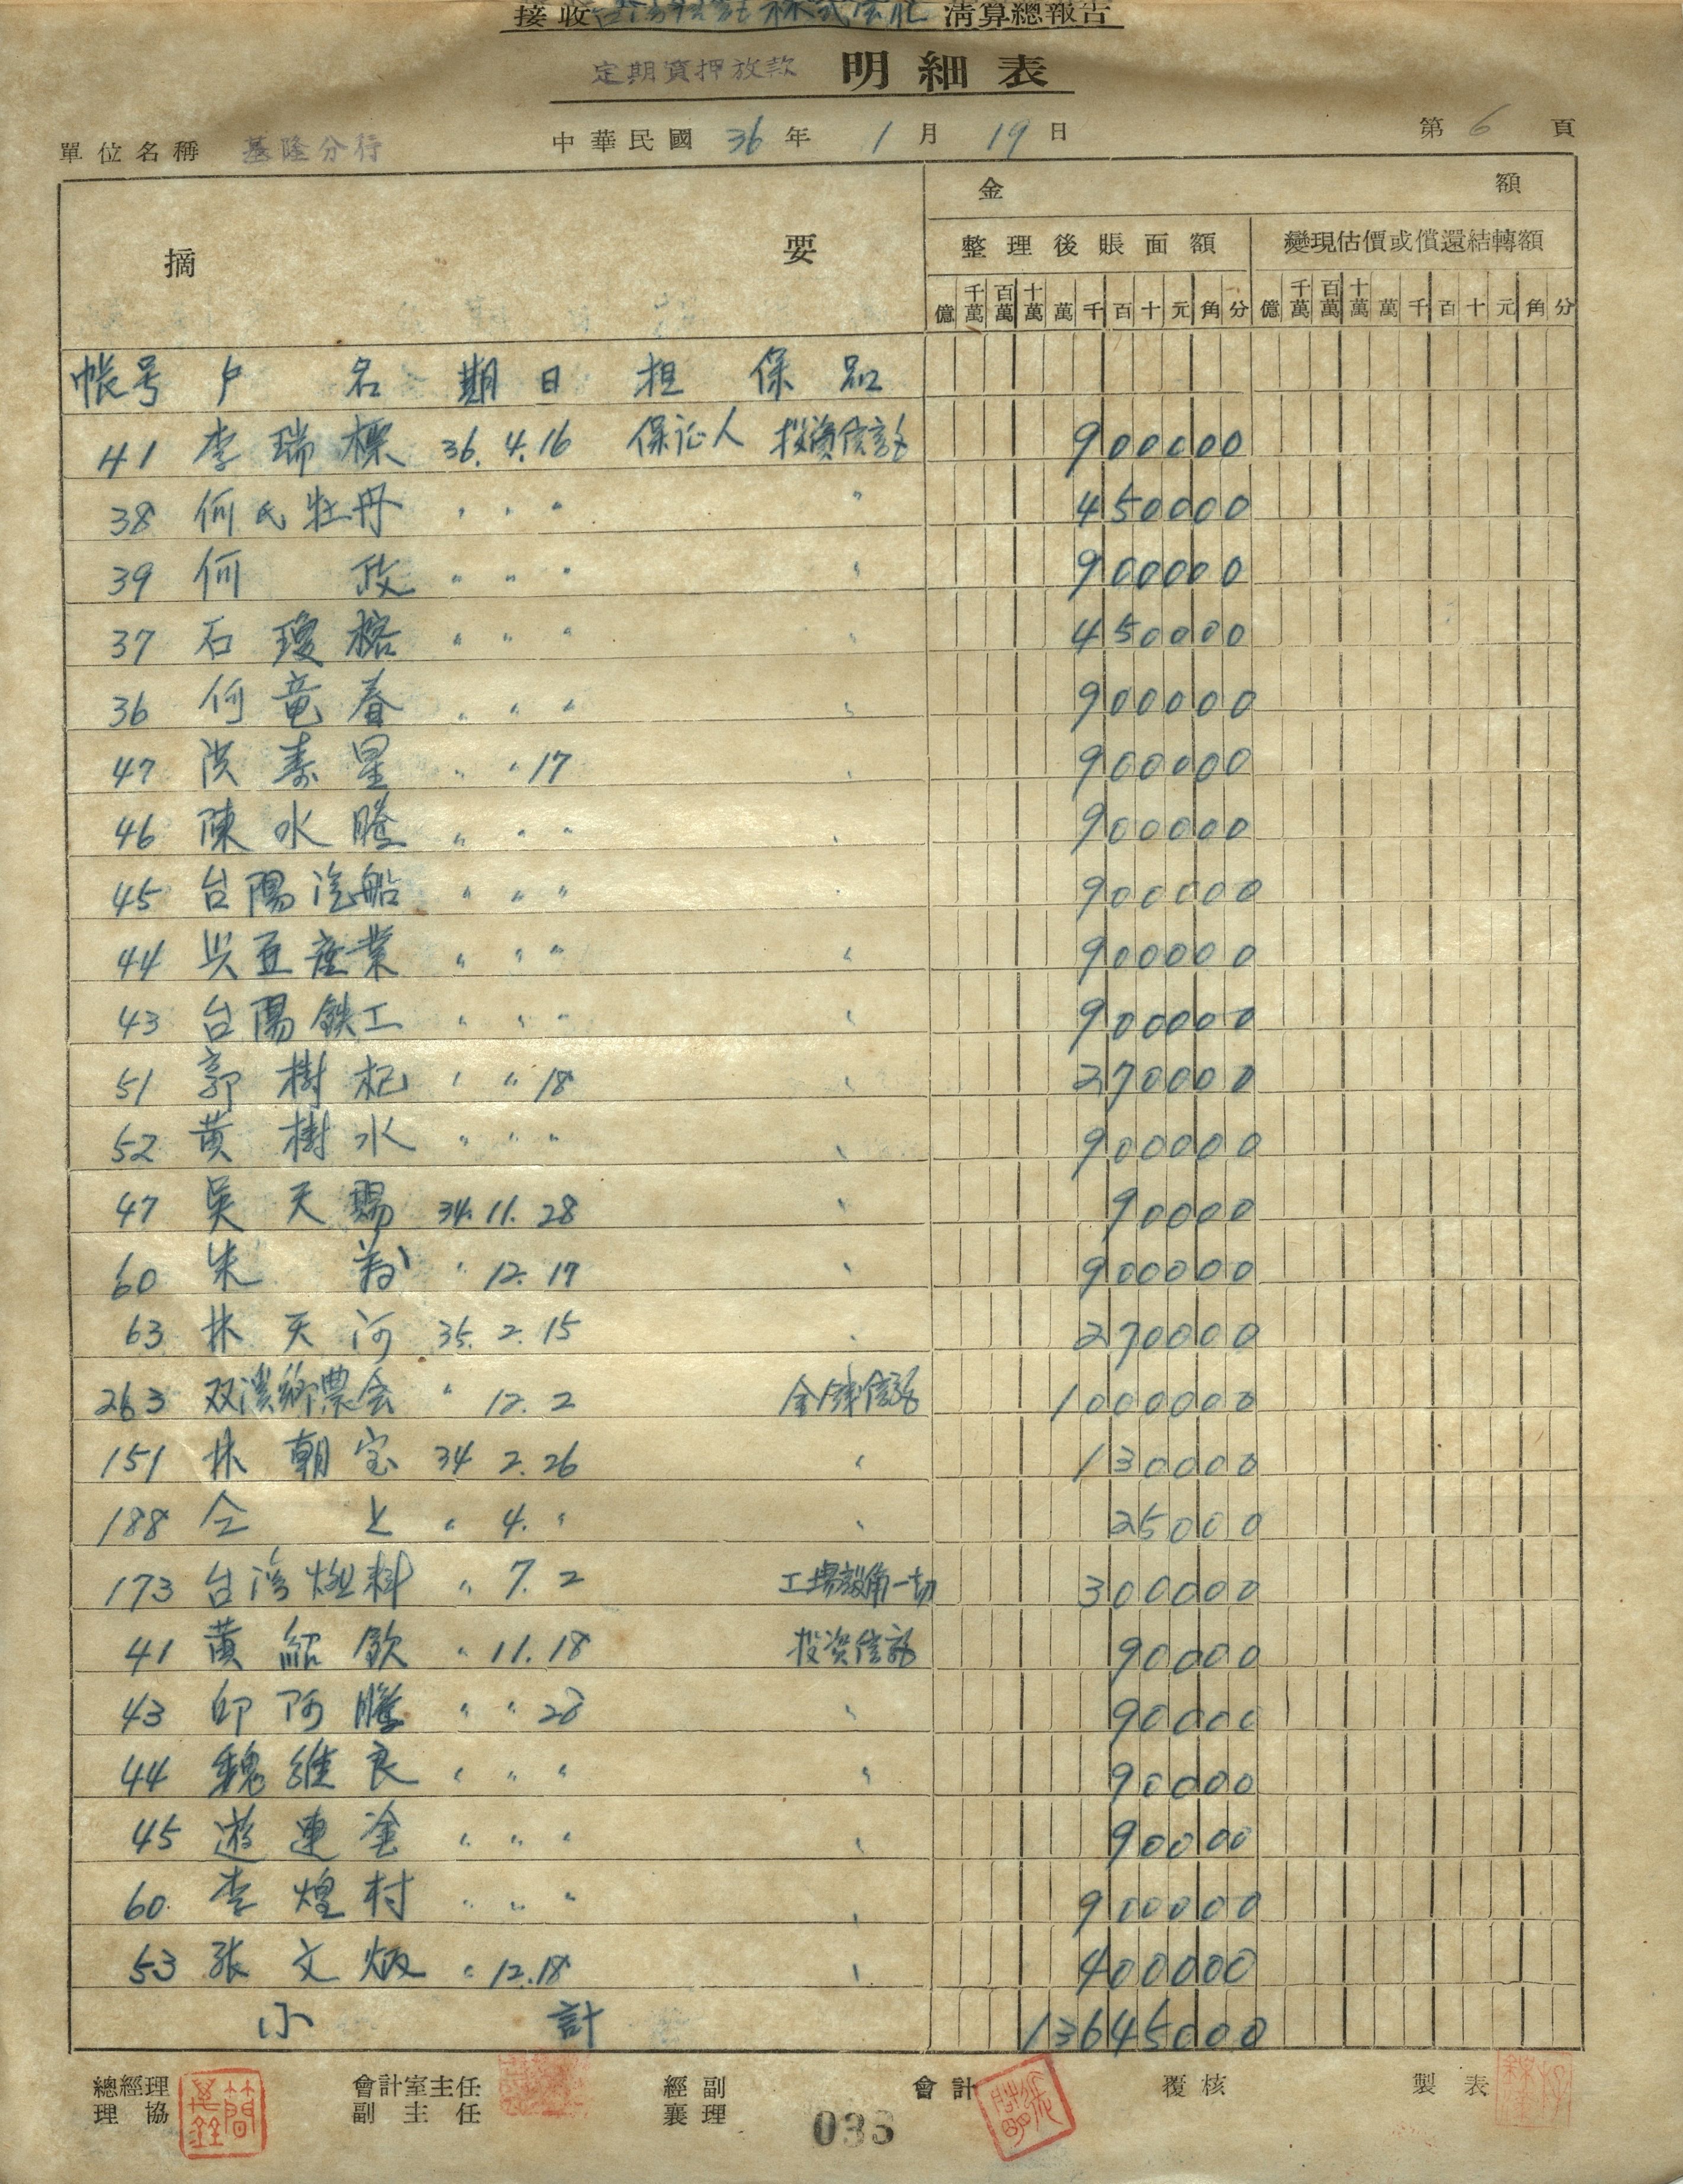 接收台灣信託株式會社清算總報告
定期質押放款 明細表
單位名稱 基隆分行 中華民國36年1月19日 第6頁
摘要 金額
整理後賬面額 變現估價或償還結轉額
億 千萬 百萬 十萬 萬 千 百 十 元 角 分 億 千萬 百萬 十萬 萬 千 百 十 元 角 分
帳号 户名 期日 担保品
41 李瑞標 36.4.16 保证人 投資信託 900000
38 何氏牡丹 〃 〃 〃 〃 450000
39 何政 〃 〃 〃 〃 900000
37 石瓊榕 〃 〃 〃 〃 450000
36 何竜春 〃 〃 〃 〃 900000
47 洪寿星 〃 〃 17 〃 900000
46 陳水騰 〃 〃 〃 〃 900000
45 台陽汽船 〃 〃 〃 〃 900000
44 興亜産業 〃 〃 〃 〃 900000
43 台陽鉄工 〃 〃 〃 〃 900000
51 郭樹杞 〃 〃 18 〃 270000
52 黄樹水 〃 〃 〃 〃 900000
47 吳天賜 34.11.28 〃 90000
60 朱 〃 12.17 〃 900000
63 林天河 35.2.15 〃 270000
263 双溪鄉農会 〃 12.2 金銭信託 1000000
151 林朝宝 34 2.26 〃 130000
188 仝上 〃 4.〃 〃 25000
173 台湾燃料 〃 7.2 工場設備一切 300000
41 黄紹欽 〃 11.18 投资信託 90000
43 邱阿騰 〃 〃 28 〃 90000
44 魏維良 〃 〃 〃 〃 90000
45 遊連塗 〃 〃 〃 〃 90000
60 李煌村 〃 〃 〃 〃 900000
53 張文炳 〃 12.18 〃 400000
小計 13645000
總經理 會計室主任 經副 會計 覆核 製表
協理 副主任 襄理
033